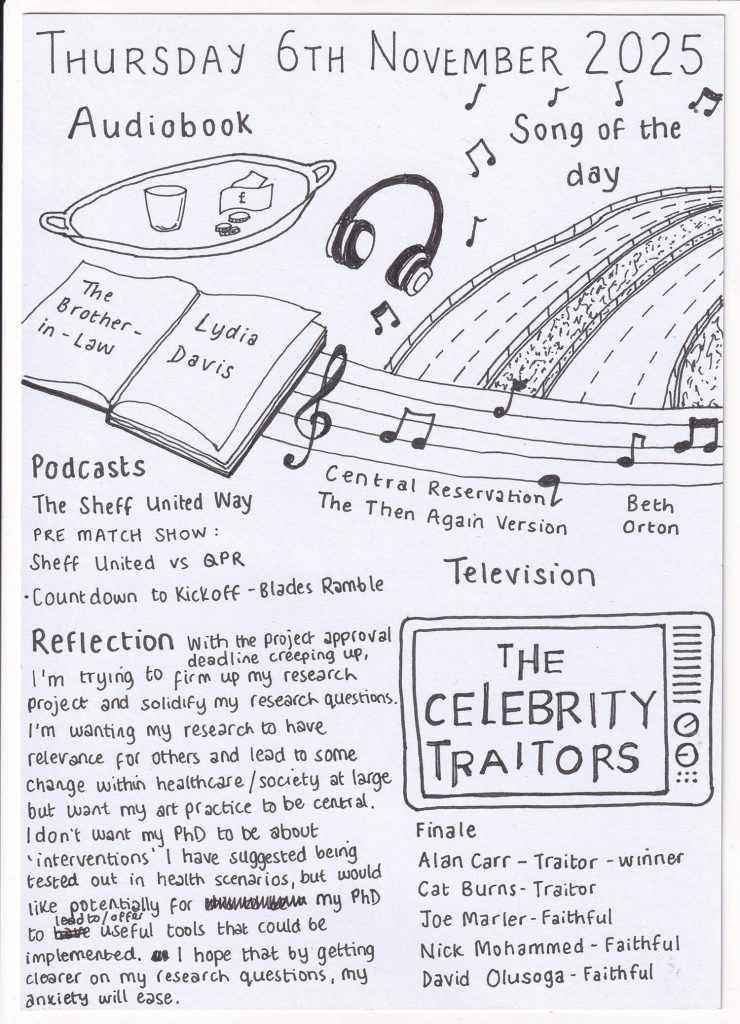 THURSDAY 6TH NOVEMBER 2025
Audiobook
£
The
Brother-
in-Law
Lydia
Davis
Song of the
day
Central Reservation
The Then Again Version
Beth
Orton
Podcasts
The Sheff United Way
PRE MATCH SHOW:
Sheff United vs QPR
·Countdown to Kickoff - Blades Ramble
Television
THE
CELEBRITY
TRAITORS
Finale
Alan Carr - Traitor - winner
Cat Burns - Traitor
Joe Marler - Faithful
Nick Mohammed - Faithful
David Olusoga - Faithful
Reflection With the project approval
deadline creeping up,
I'm trying to firm up my research
project and solidify my research questions.
I'm wanting my research to have
relevance for others and lead to some
change within healthcare/society at large
but want my art practice to be central.
I don't want my PhD to be about
'interventions' I have suggested being
tested out in health scenarios, but would
like potentially for my PhD
lead to/offer
to have useful tools that could be
implemented. I hope that by getting
clearer on my research questions, my
anxiety will ease.